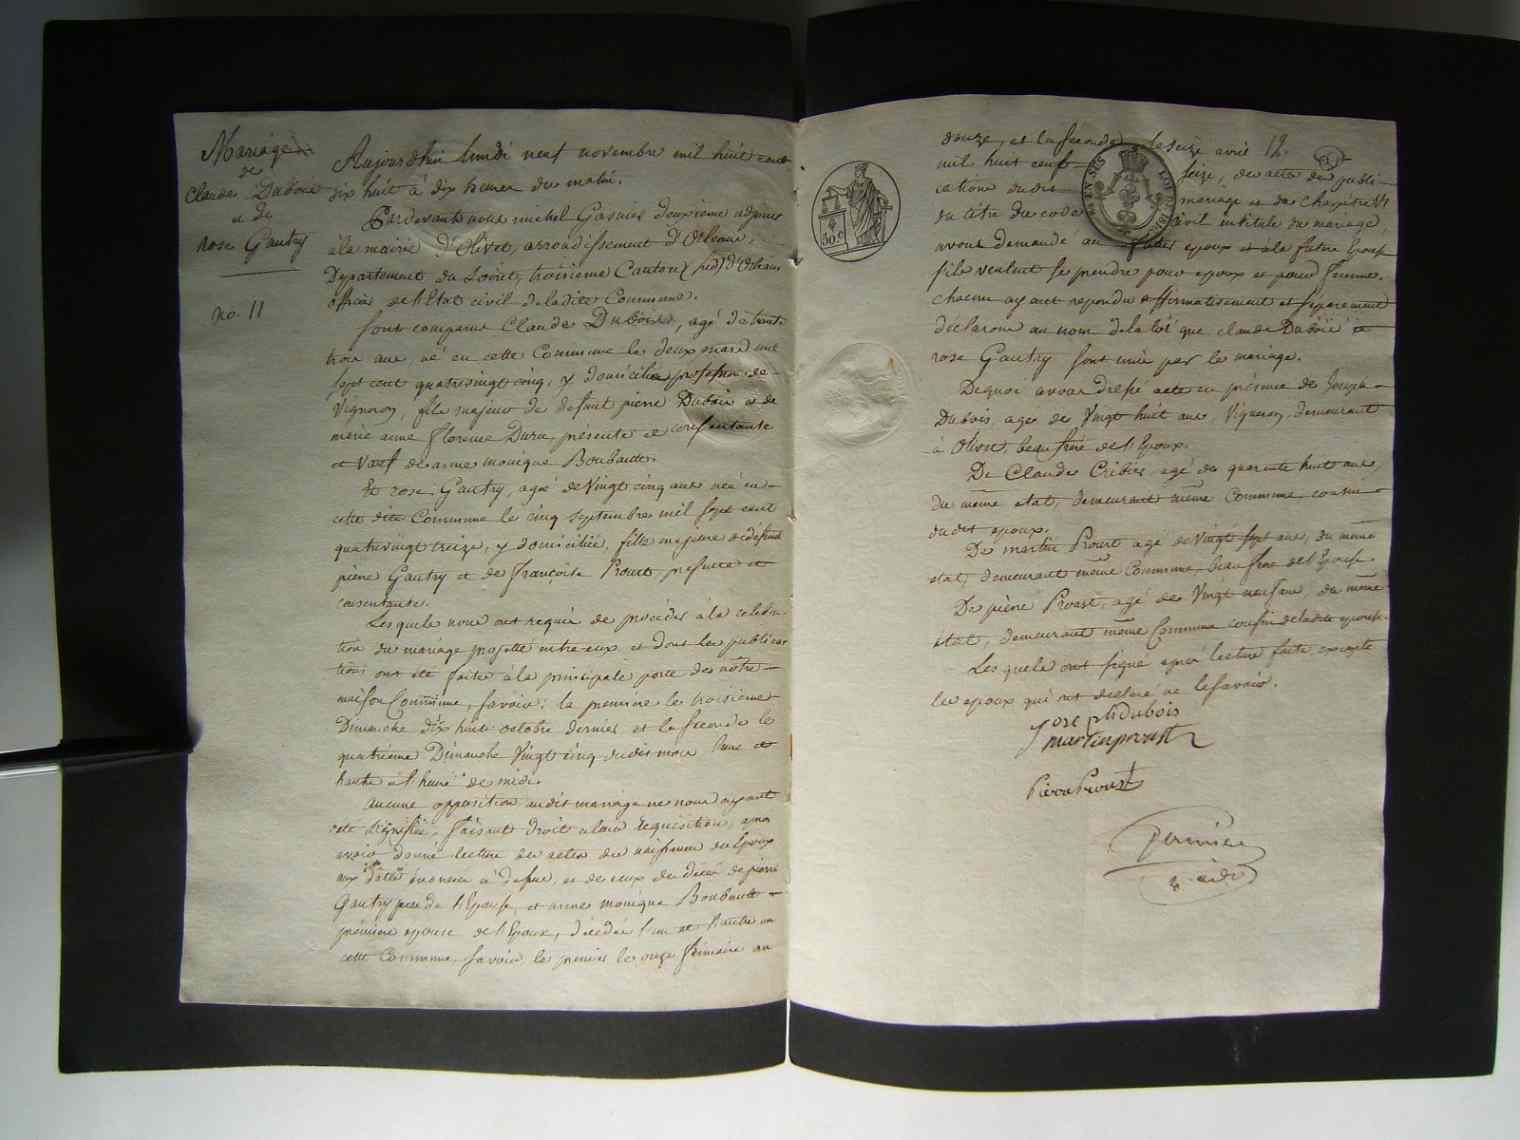 Mariage
de
Claude Dubois
et de
rose Gautry
no. 11
Aujourdhui lundi neuf novembre mil huit cent
dix huit à dix heures du matin.
Pardevant nous michel Gasnier deuxieme adjoint
à la mairie d'Olivet, arrondissement d'Orleans,
Departement du Loiret, troisieme Canton (sud) d'Orleans
officier de l'Etat civil de ladite Commune.
sont comparus Claude Dubois, agé de trente
trois ans, né en cette Commune le deux mars mil
sept cent quatrevingt cinq, y domicilié profession de
Vigneron, fils majeur de defunt pierre Dubois et de
marie anne florence Duru, presente et consentante
et veuf de anne monique Boubault.
Et rose Gautry, agée de Vingt cinq ans née en
cette dite Commune le cinq septembre mil sept cent
quatrevingt treize, y domiciliée, fille majeure de défunt
pierre Gautry et de françoise Proust presente et
consentante.
Lesquels nous ont requis de proceder à la celebra-
tion du mariage projetté entre eux et dont les publica
tions ont été faites à la principale porte de notre
maison Commune, savoir: la premiere le troisieme
Dimanche dix huit octobre dernier et la seconde le
quatrieme Dimanche Vingt cinq dudit mois l'une et
l'autre à l'heure de midi.
Aucune opposition audit mariage ne nous ayant
été signifiée, faisant droit à leur requisition, apres
avoir donné lecture des actes de naissance des Epoux
aux dates énoncés ci dessus, et de ceux de décés de pierre
Gautry pere de l'Epouse, et anne monique Boubault
premiere epouse de l'Epoux, décédés l'un et l'autre en
cette Commune, savoir le premier le onze frimaire an
douze, et la seconde le seize avril 12.
mil huit cent seize, des actes de publi-
cations dudit mariage et du chapitre VI
du titre du code civil intitulé du mariage,
avons demandé au futur epoux et à la future Epouse
s'ils veulent se prendre pour epoux et pour femme.
chacun ayant repondu affirmativement et separement
déclarons au nom de la loi que claude Dubois et
rose Gautry sont unis par le mariage.
De quoi avons dressé acte en présence de Joseph
Dubois, agé de Vingt huit ans, Vigneron, demeurant
à Olivet, beau frere de l'Epoux.
De Claude Cribier, agé de quarante huit ans,
du même etat, demeurant même Commune cousin
dudit epoux.
De martin Proust agé de vingt sept ans, du même
etat, demeurant même Commune, beau frere de l'Epouse.
De pierre Proust, agé de Vingt neuf ans, du même
état, demeurant même Commune cousin de ladite epouse.
Lesquels ont signé après lecture faite excepté
les epoux qui ont déclaré ne le savoir.
Joseph Dubois
martin proust
Pierre Proust
30 c.